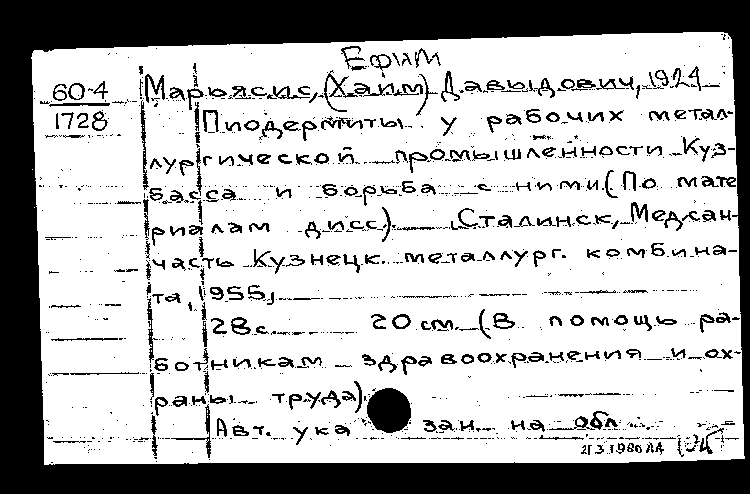 Ефим
60-4 Марьясис, (Хаим) Давыдович, 1924
1728 Пиодермиты у рабочих метал-
лургической промышленности Куз-
басса и борьба с ними (По мате
риалам дисс). Сталинск, Медсан-
часть Кузнецк. металлург. комбина-
та, 1955,
28 с. 20 см. (В помощь ра-
ботникам здравоохранения и ох-
раны труда)
Авт. ука зан на обл.